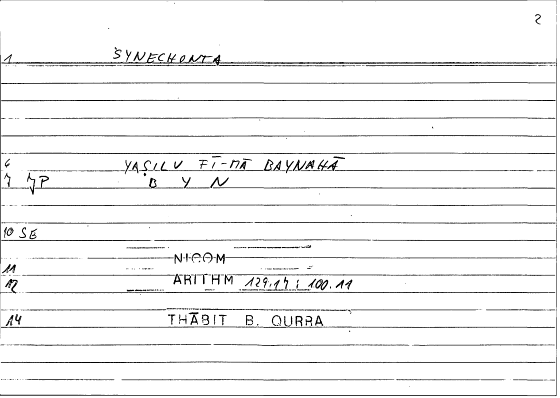 2
1 SYNECHONTA
6 YAṢILU FĪ-MĀ BAYNAHĀ
7 JP B Y N
10 SE
NICOM
11
12 ARITHM 129.17 : 100.11
14 THĀBIT B. QURRA